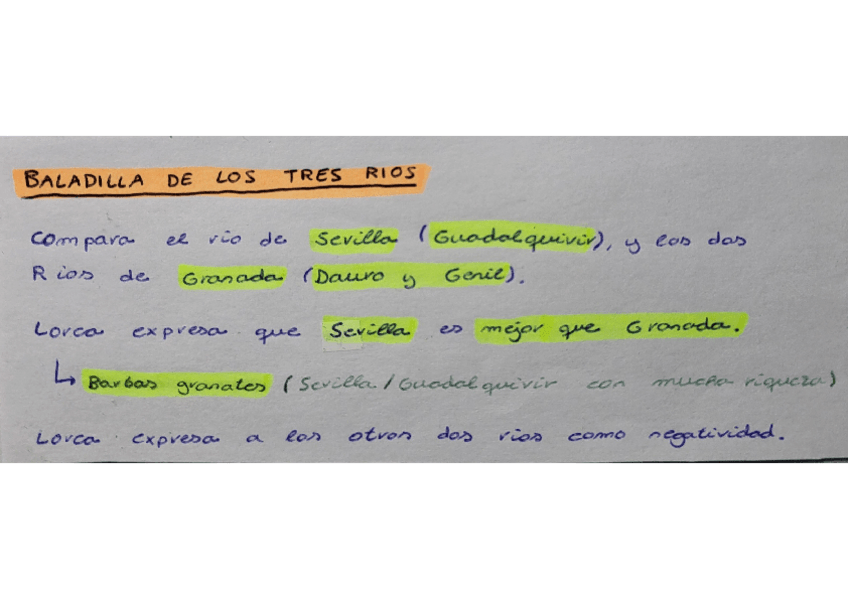 BALADILLA DE LOS TRES RIOS
Compara el rio de Sevilla (Guadalquivir), y los dos
Rios de Granada (Dauro y Genil).
Lorca expresa que Sevilla es mejor que Granada.
↳ Barbas granates (Sevilla/Guadalquivir con mucha riqueza)
Lorca expresa a los otros dos rios como negatividad.